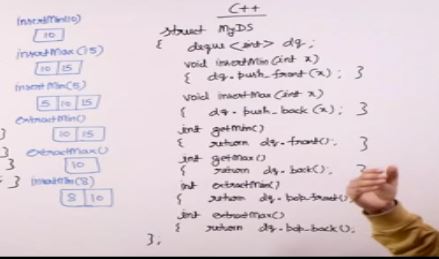 insertMin(10)
10
insertMax(15)
10 15
insertMin(5)
5 10 15
extractMin()
10 15
extractMax()
10
insertMin(8)
8 10
C++
struct MyDS
{ deque <int> dq;
void insertMin(int x)
{ dq.push_front(x); }
void insertMax(int x)
{ dq.push_back(x); }
int getMin()
{ return dq.front(); }
int getMax()
{ return dq.back(); }
int extractMin()
{ return dq.pop_front();
int extractMax()
{ return dq.pop_back();
};